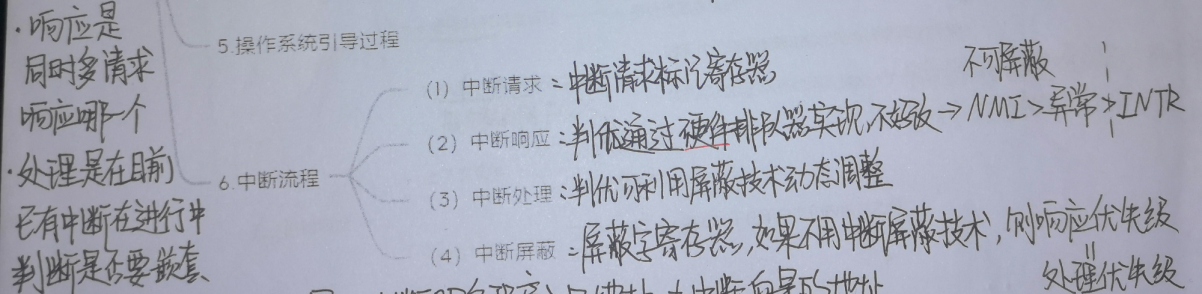 ·响应是
同时多请求
响应哪一个
·处理是在目前
已有中断在进行中
判断是否要嵌套
5.操作系统引导过程
6.中断流程
(1) 中断请求：中断请求标记寄存器
不可屏蔽
(2) 中断响应：判优通过硬件排队器实现,不好改→NMI>异常>INTR
(3) 中断处理：判优可利用屏蔽技术动态调整
(4) 中断屏蔽：屏蔽字寄存器,如果不用中断屏蔽技术,则响应优先级
=
处理优先级